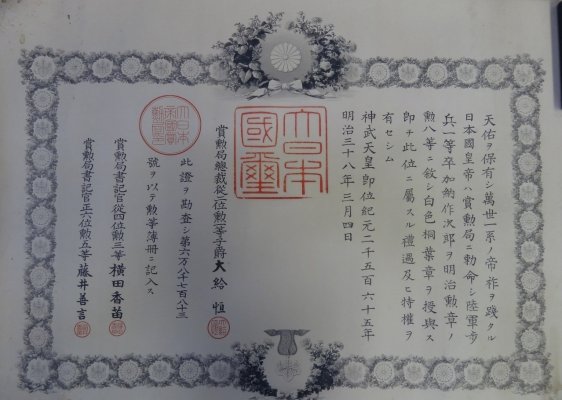 天佑ヲ保有シ萬世一系ノ帝祚ヲ踐タル
日本國皇帝ハ賞勲局ニ勅命シ陸軍歩
兵一等卒加納作次郎ヲ明治勲章ノ
勲八等ニ敘シ白色桐葉章ヲ授與ス
即チ此位ニ屬スル禮遇及ヒ特權ヲ
有セシム
神武天皇即位紀元二千五百六十五年
明治三十八年三月四日
大日本國璽
賞勲局總裁從二位勲一等子爵大給恒
此證ヲ勘査シ第六万八千七百八十三
號ヲ以テ勲等簿冊ニ記入ス
賞勲局書記官從四位勲三等橫田香苗
賞勲局書記官正六位勲五等藤井善言